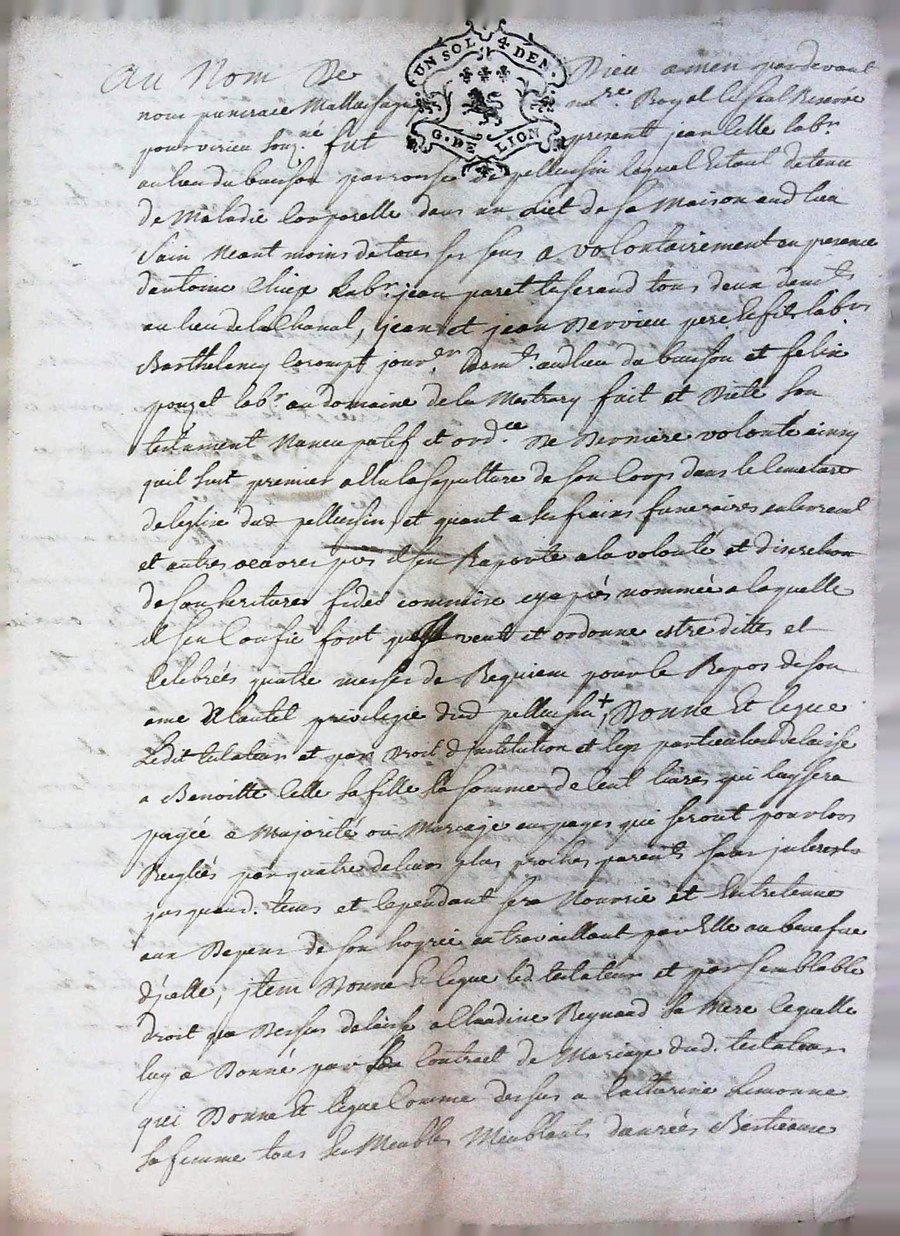 UN SOL 4 DEN.
G. DE LION
Au Nom De Dieu amen pardevant
nous Mallassagne no.re Royal
pour virieu souz.né fut présent jean Celle lab.r
au lieu du buisson parroisse de pellussin lequel Estant detenu
de Maladie Corporelle dans un Liet de sa Maison aud lieu
Sain Neant moins de tous ses sens a volontairement en presence
dantoine lab.r jean paret tisserand tous deux dem.ts
au lieu de la Chanal, jean et jean Dervieu pere et fils lab.rs
Barthelemy Coront jour.er dem.t aud lieu du buisson et felix
pouzet lab.r au domaine de la fait et Dicté son
testament Nuncupatif et ord.ce De Derniere volonté ainsy
quil suit premier a llu la sepulture de son Corps dans le Cemetiere
de leglise dud pellussin et quant a ses frais funeraires
et autres oeuvres pies il sen Raporte a la volonté et discretion
de son heritiere fidei commise cy apres nommée a laquelle
il sen Confie fort veut et ordonne estre dittes et
Celebrées quatre messes de Requiem pour le Repos de son
ame a Lautel privilegie dud pellussin + Donne Et legue
Ledit testateur et par Droit d'institution et legs particulier delaisse
a Benoitte Celle sa fille la somme de Cent livres qui luy sera
payée a Majorité ou Mariage en payes qui seront pour lors
Reglés par quatre de leurs plus proches parents sans jnterests
jusquaud. tems et Cependant sera Nourrie et Entretenue
aux Depens de son hoyrie en travaillant par Elle au benefice
dicelle, jtem Donne Et legue led testateur et par semblable
droit que Dessus delaisse a Claudine Reynaud sa Mere lequelle
luy a Donné par son Contract de Mariage dud. testateur
qui Donne Et legue Comme dessus a Catherine Limonne
sa femme tous ses Meubles Meublants danrées Bestieaux